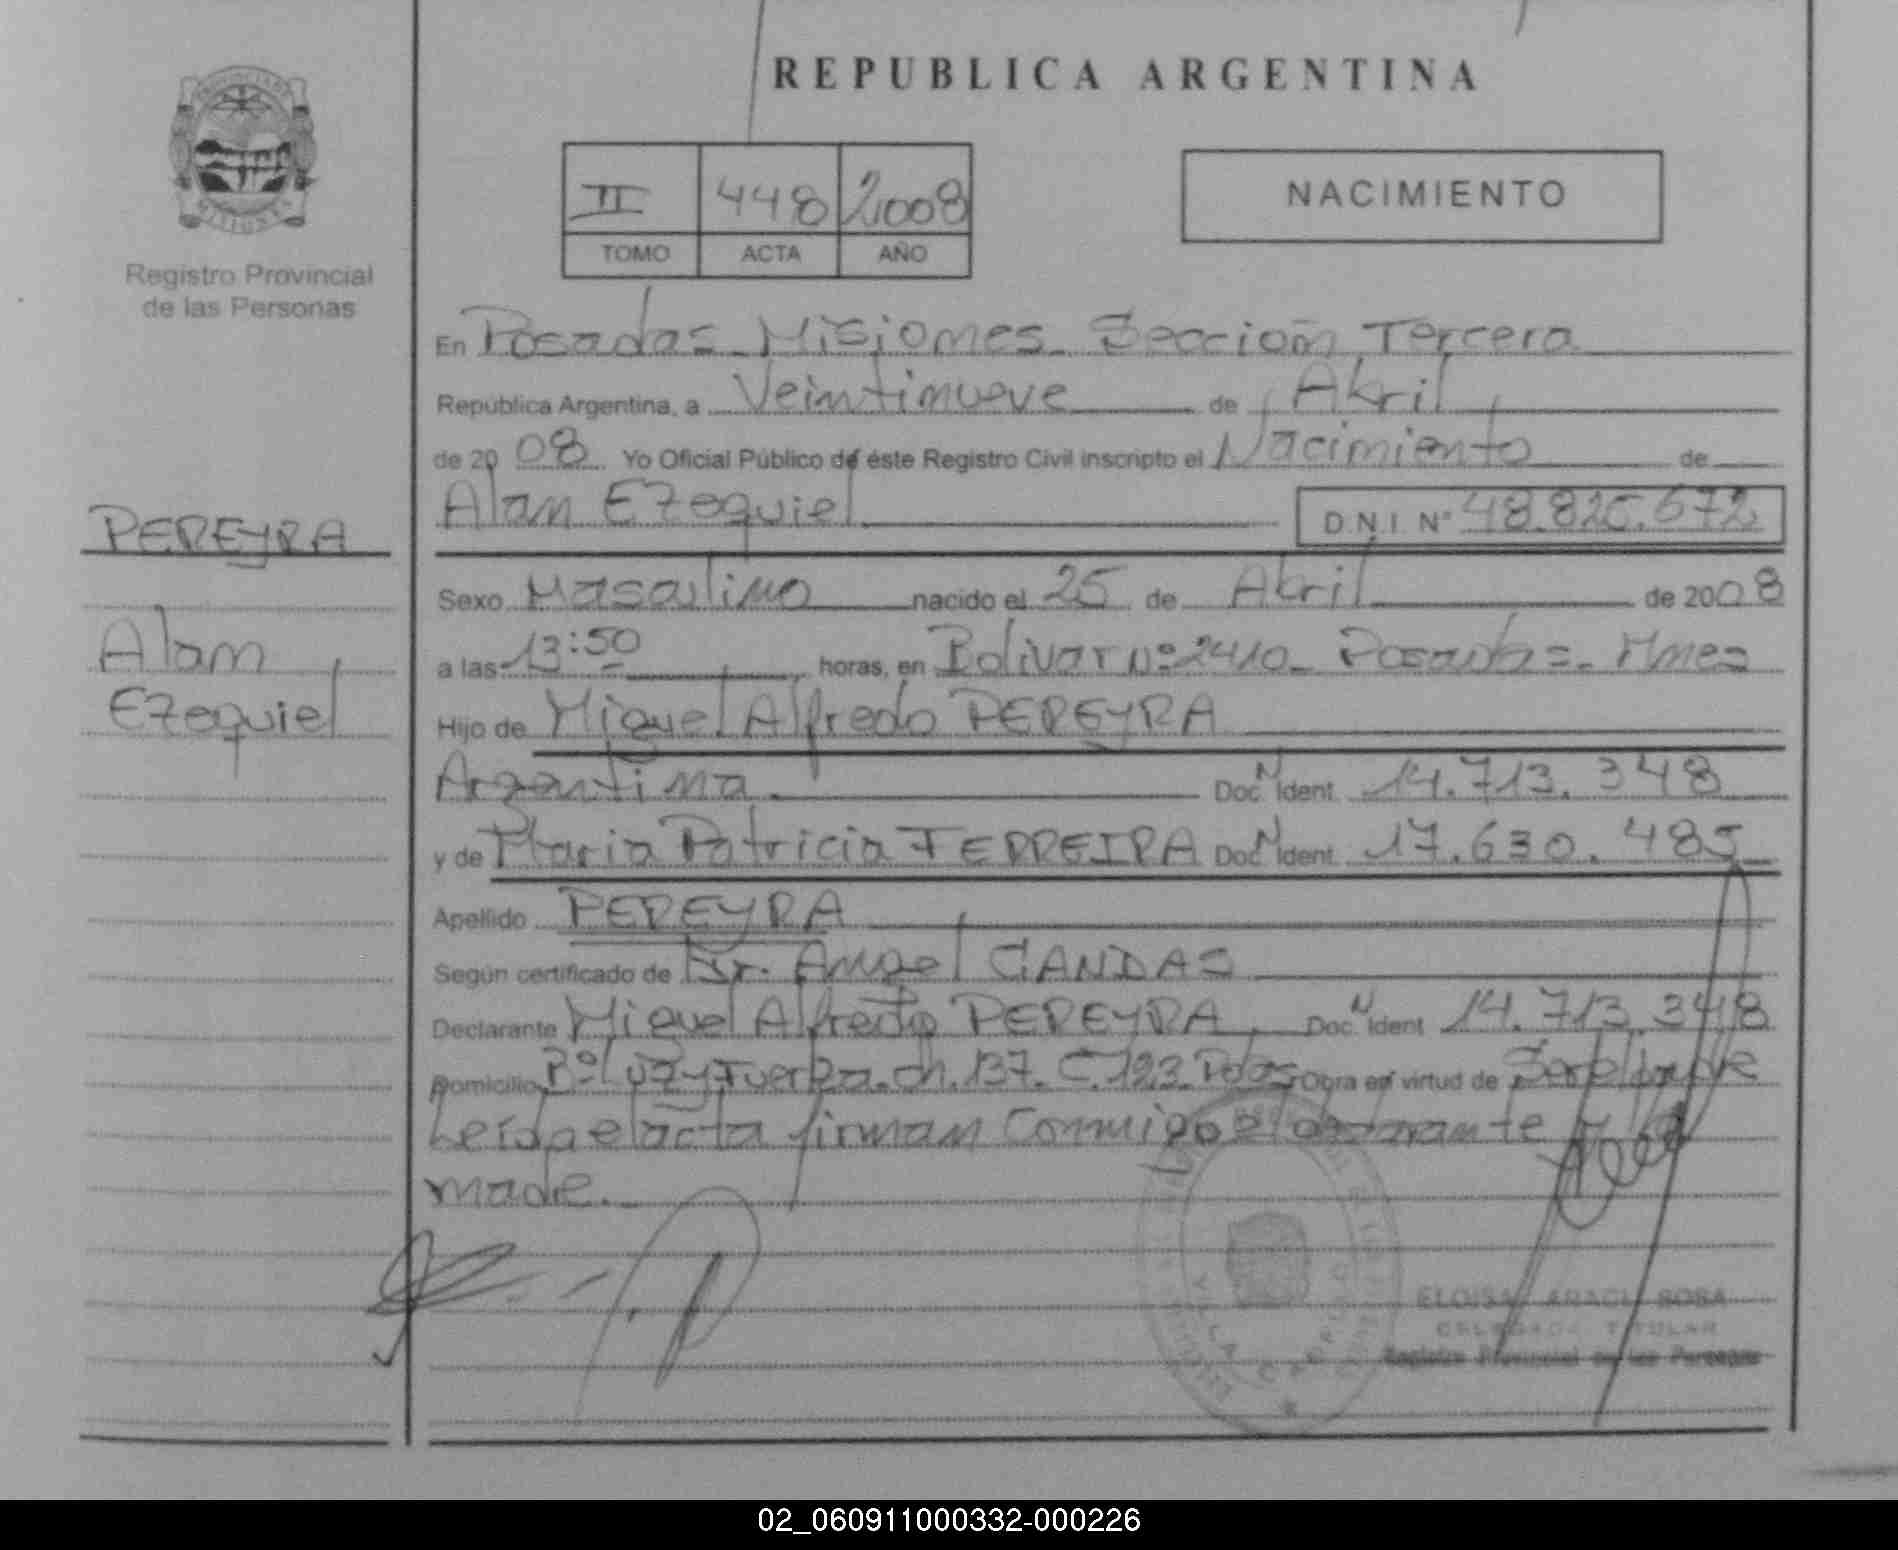 REPUBLICA ARGENTINA
II 448 2008
TOMO ACTA AÑO
NACIMIENTO
Registro Provincial
de las Personas
En Posadas - Misiones - Sección Tercera
República Argentina, a Veintinueve de Abril
de 2008 Yo Oficial Público de éste Registro Civil inscripto el Nacimiento de
Alan Ezequiel D.N.I. Nº 48.825.672
PEREYRA
Alan
Ezequiel
Sexo Masculino nacido el 25 de Abril de 2008
a las 13:50 horas, en Bolivar Nº 2410 - Posadas - Mnes
Hijo de Miguel Alfredo PEREYRA
Argentina Doc. N Ident. 14.713.348
y de Maria Patricia FERREIRA Doc. N Ident. 17.630.485
Apellido PEREYRA
Según certificado de Dr. Angel GANDAS
Declarante Miguel Alfredo PEREYRA Doc. N Ident 14.713.348
Domicilio Bº Luz y Fuerza. ch. 137. C. 123. Pdas Obra en virtud de Ser el padre
Leída el acta firman Conmigo el declarante y la
madre.
VILLA CABELLO
ELOISA ARACI SOSA
DELEGADA TITULAR
Registro Provincial de las Personas
02_060911000332-000226